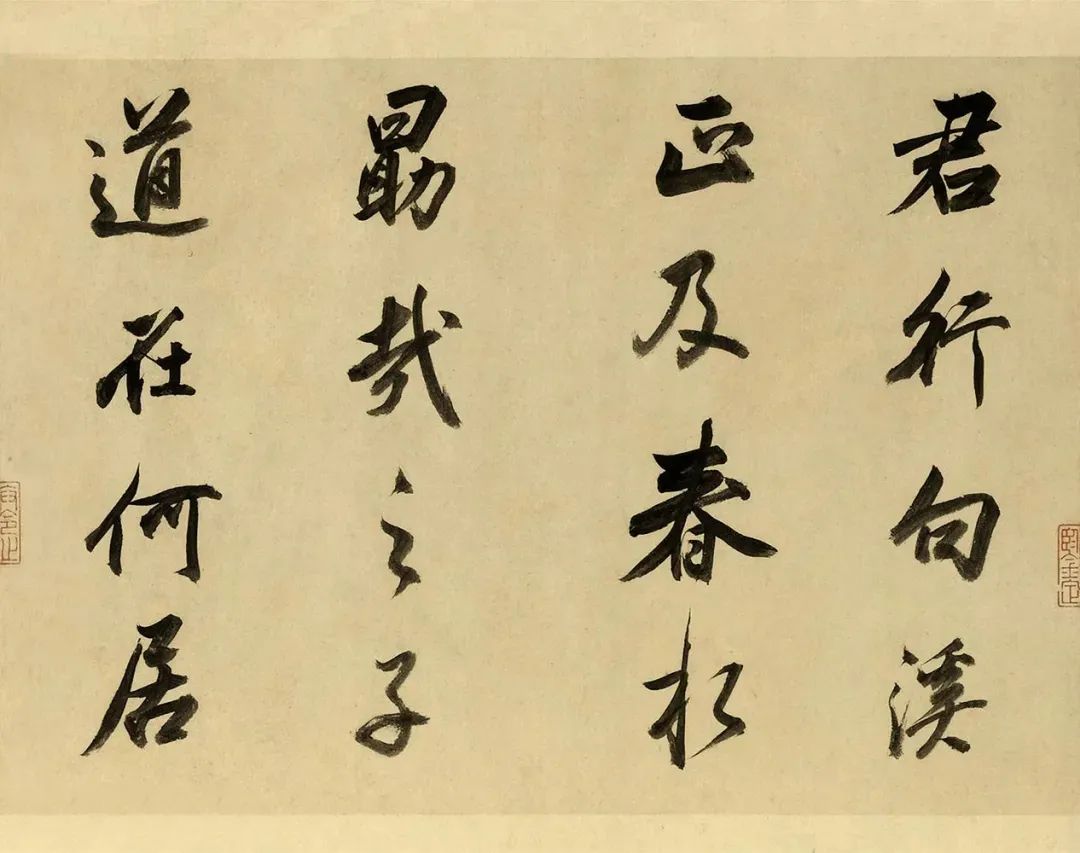 君行句溪
正及春杉
勗哉之子
道在何居